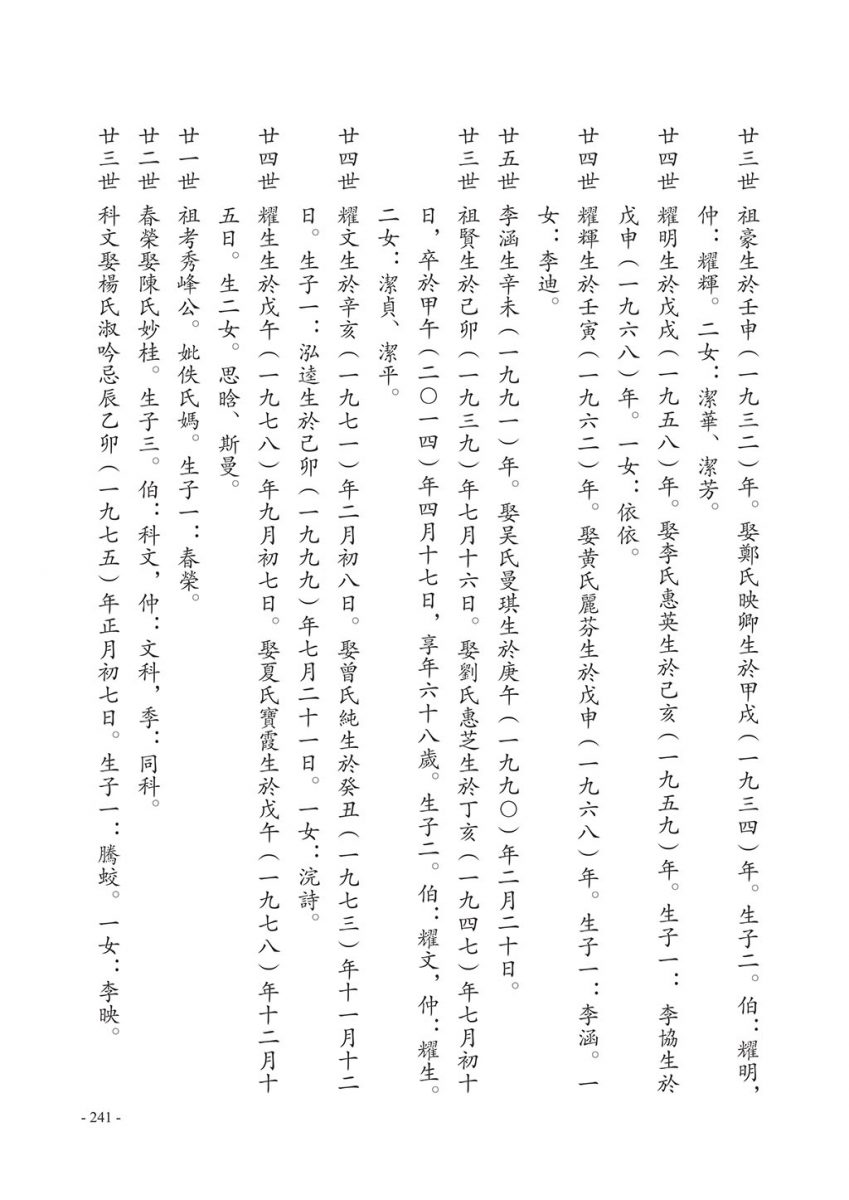 廿三世　祖豪生於壬申（一九三二）年。娶鄭氏映卿生於甲戌（一九三四）年。生子二。伯：耀明，
仲：耀輝。二女：潔華、潔芳。
廿四世　耀明生於戊戌（一九五八）年。娶李氏惠英生於己亥（一九五九）年。生子一：李協生於
戊申（一九六八）年。一女：依依。
廿四世　耀輝生於壬寅（一九六二）年。娶黃氏麗芬生於戊申（一九六八）年。生子一：李涵。一
女：李迪。
廿五世　李涵生辛未（一九九一）年。娶吴氏曼琪生於庚午（一九九〇）年二月二十日。
廿三世　祖賢生於己卯（一九三九）年七月十六日。娶劉氏惠芝生於丁亥（一九四七）年七月初十
日，卒於甲午（二〇一四）年四月十七日，享年六十八歲。生子二。伯：耀文，仲：耀生。
二女：潔貞、潔平。
廿四世　耀文生於辛亥（一九七一）年二月初八日。娶曾氏純生於癸丑（一九七三）年十一月十二
日。生子一：泓逵生於己卯（一九九九）年七月二十一日。一女：浣詩。
廿四世　耀生生於戊午（一九七八）年九月初七日。娶夏氏寶霞生於戊午（一九七八）年十二月十
五日。生二女。思晗、斯曼。
廿一世　祖考秀峰公。妣佚氏媽。生子一：春榮。
廿二世　春榮娶陳氏妙桂。生子三。伯：科文，仲：文科，季：同科。
廿三世　科文娶楊氏淑吟忌辰乙卯（一九七五）年正月初七日。生子一：騰蛟。一女：李映。
- 241 -